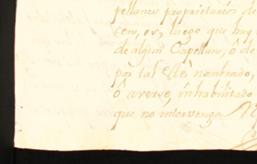 pellanes proprietarios de
cen, or, luego que hay
de algun Capellan, ô de
por tal esté nombrado,
ô avise, inhabilitado
que no intervenga